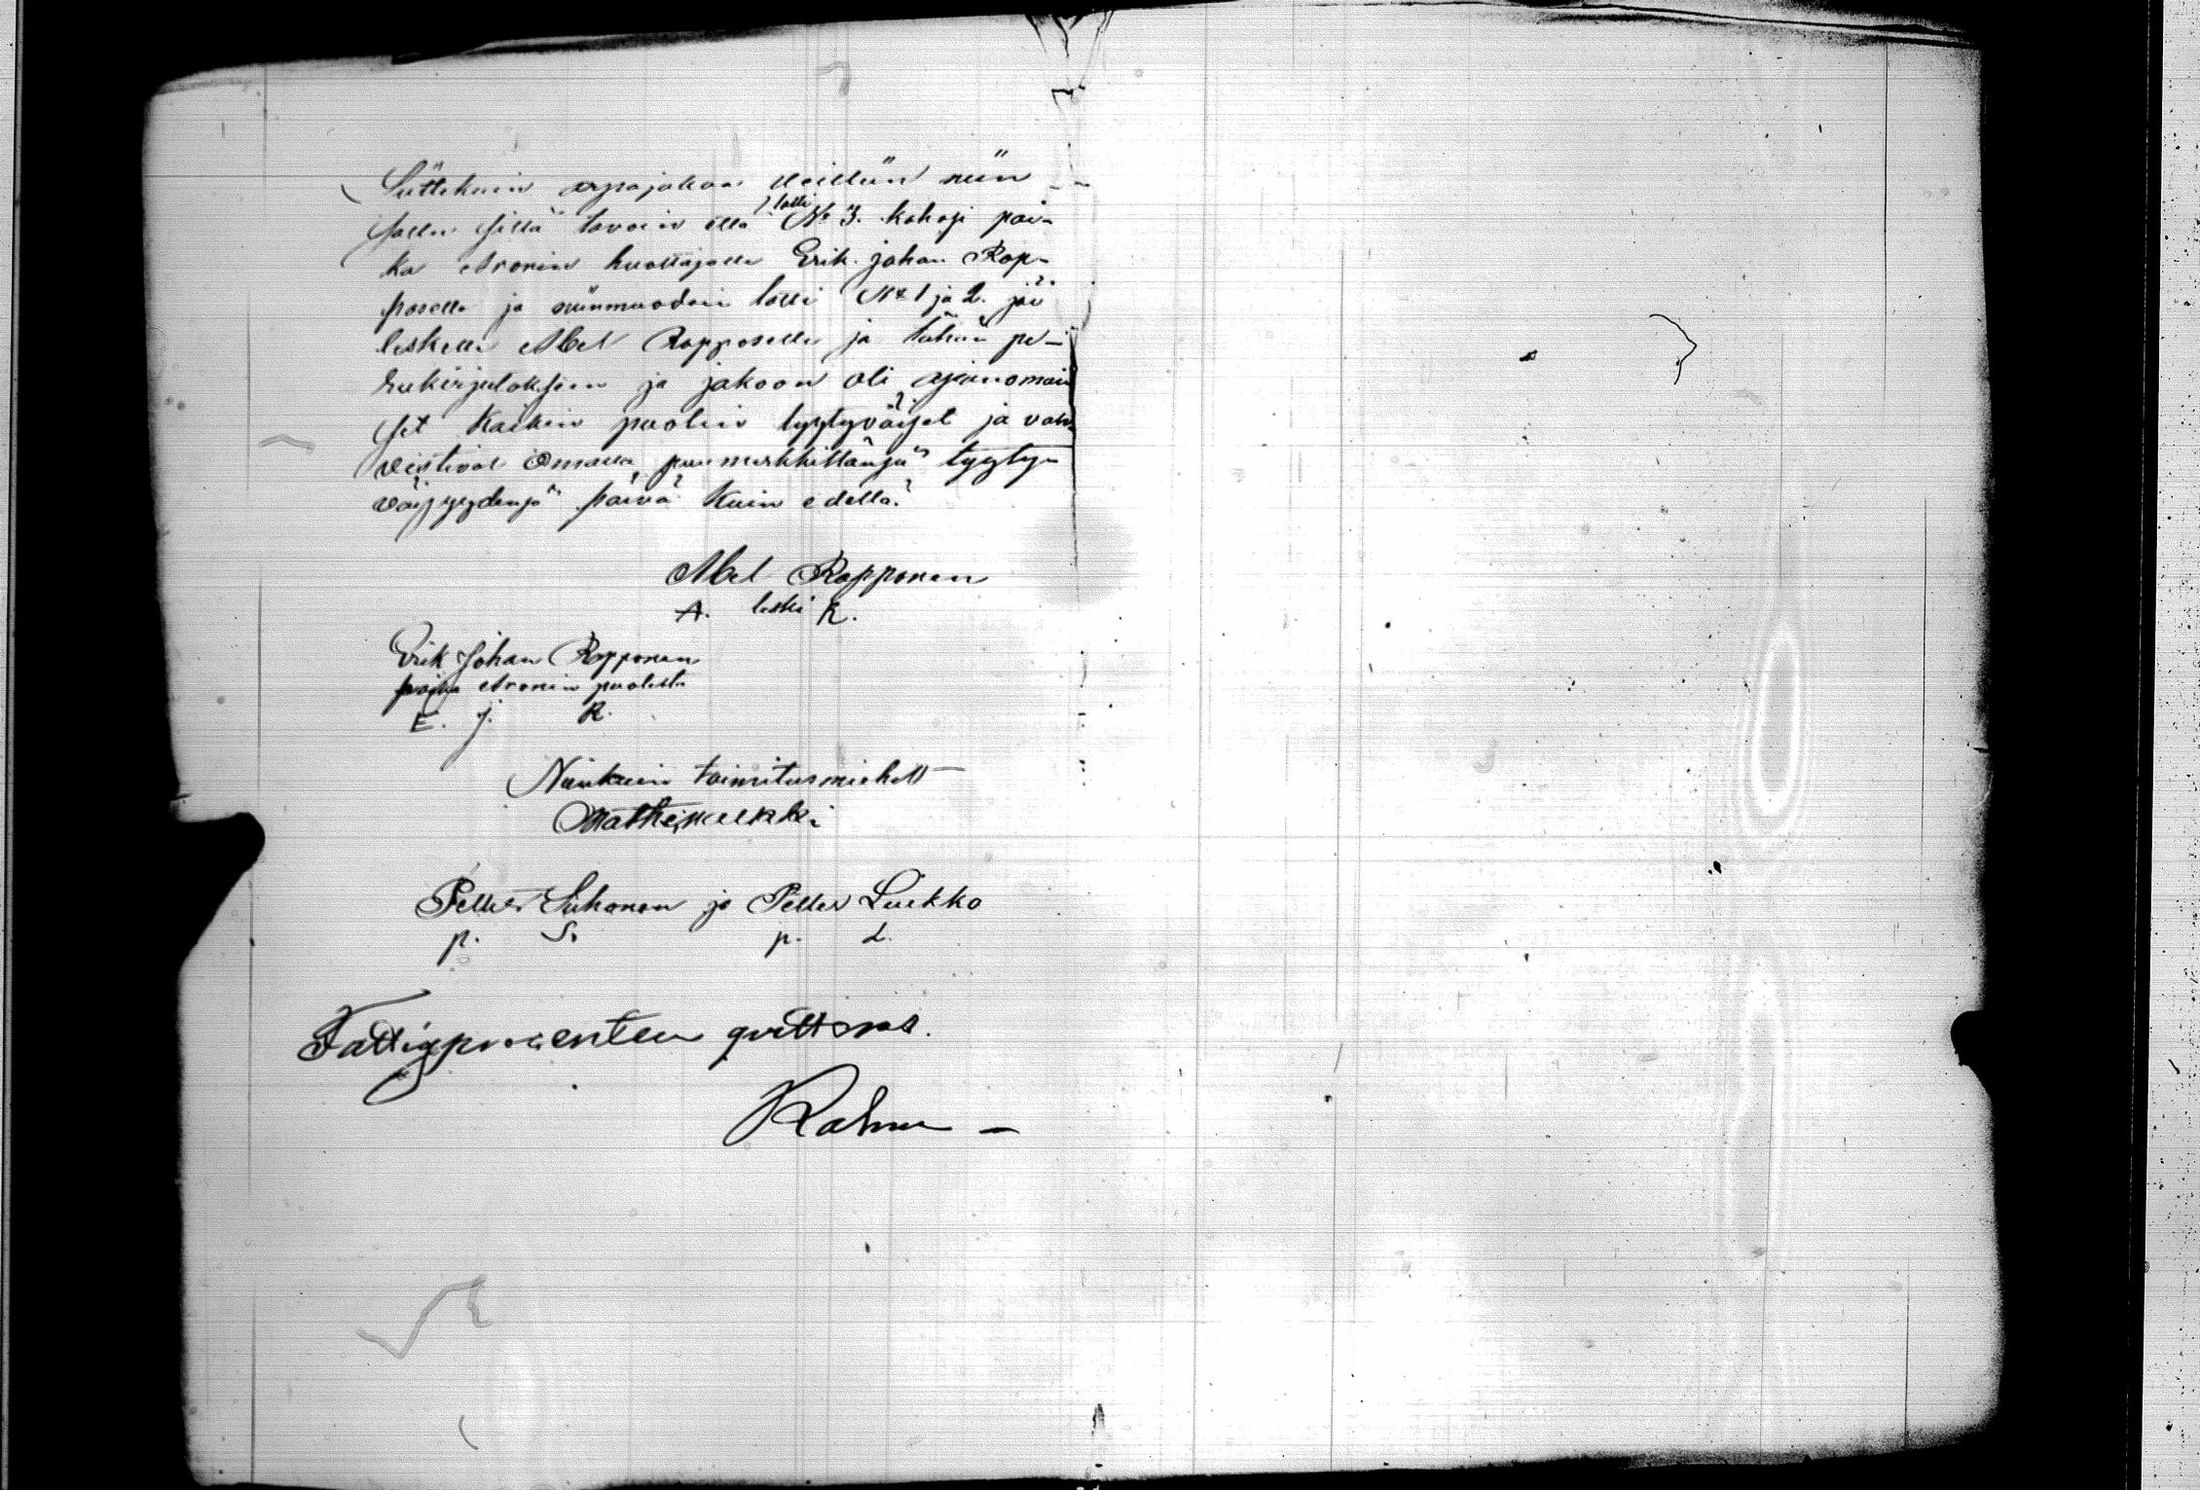 Siittekuin arpajakoa teilliin niin
sattu sillä tavoin että lotti No 3. kohosi poi-
ka Aronin huoltajalle Erik Johan Rop-
poselle ja niinmuodoin lotti No 1 ja 2. jäi
leskelle Abel Ropposelle ja tähän pe-
rukirjutoksjeen ja jakoon oli asianomai
set kaikin puolin tyytyväiset ja vah
vistivat omalla puumerkkillänsä tyyty-
väisyydensä päivä kuin edellä.
Abel Ropponen
A. leski R.
Erik Johan Ropponen
poijan Aronin puolesta
E. J. R.
Niinkuin toimitusmiehet
Petter Suhonen ja Petter Luukko
p. S. p. L.
Fattigprocenten qvitteras.